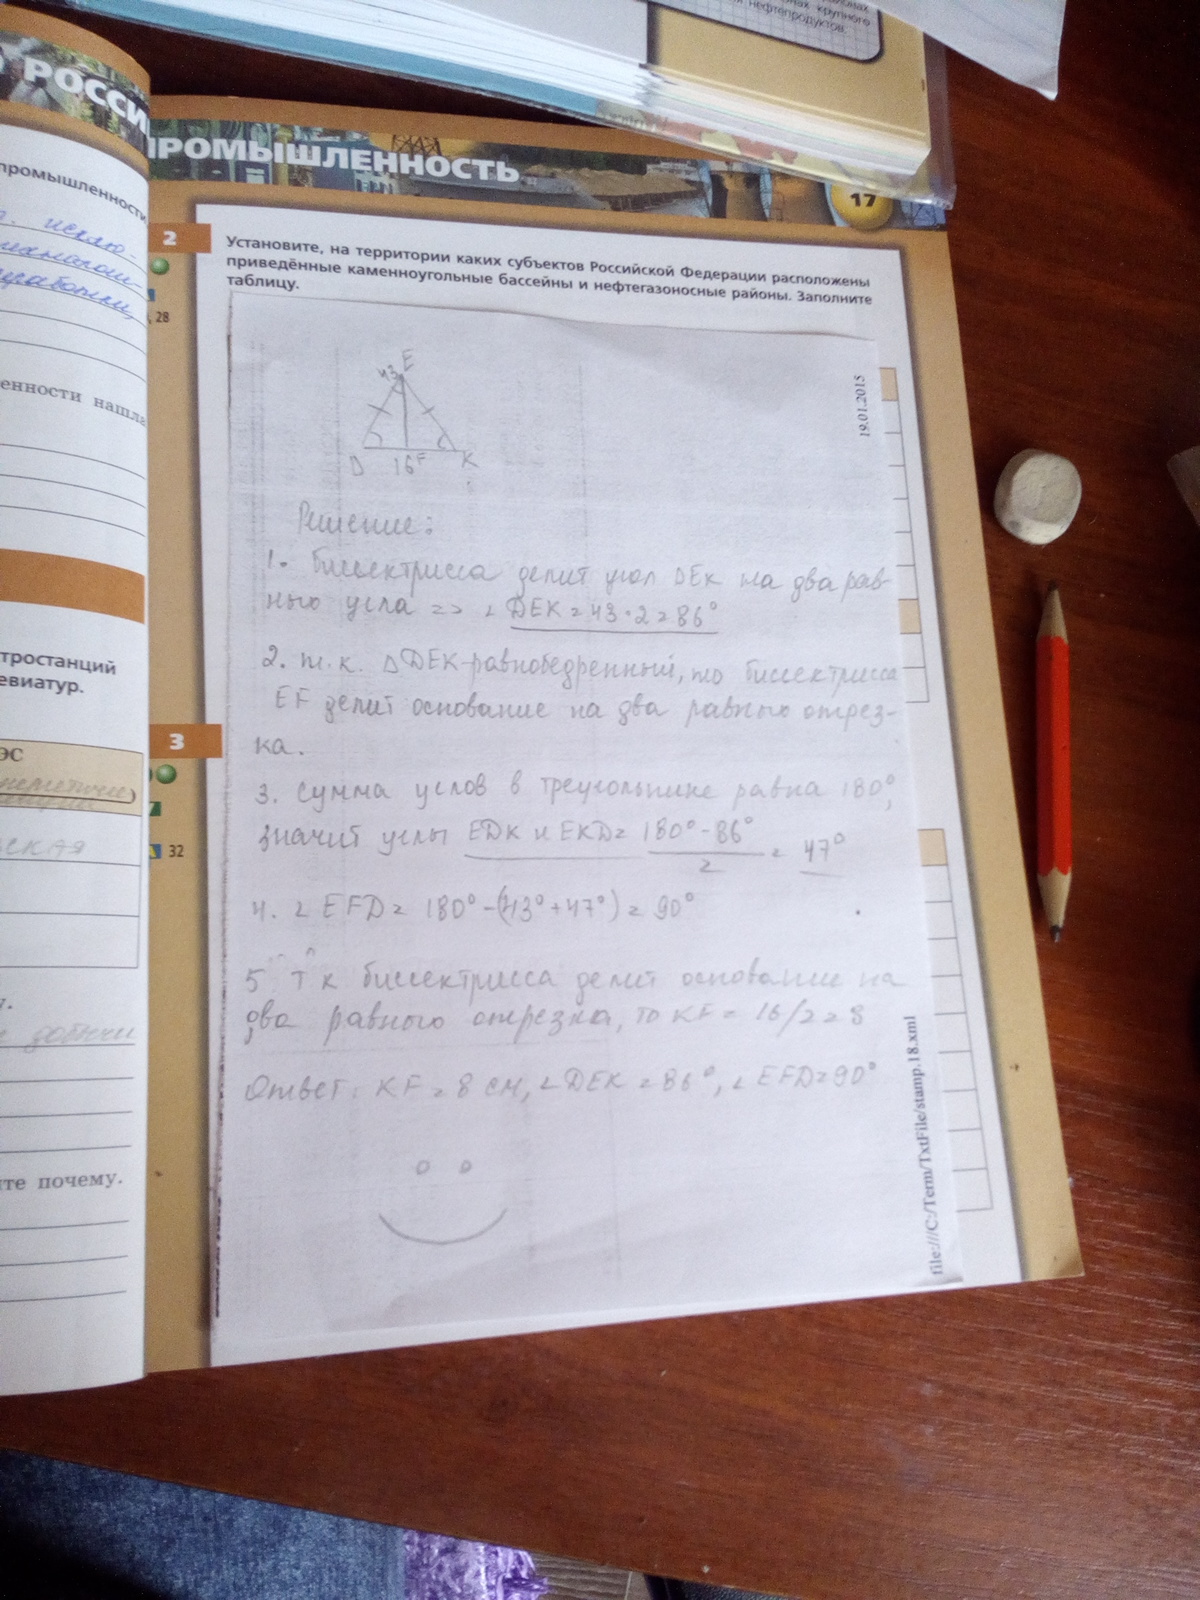 нефтепродуктов.
О РОССИ
ПРОМЫШЛЕННОСТЬ
17
промышленности,
2
Установите, на территории каких субъектов Российской Федерации расположены
приведённые каменноугольные бассейны и нефтегазоносные районы. Заполните
таблицу.
, 28
енности нашла
тростанций
евиатур.
ЭС
3
32
те почему.
19.01.2015
43
E
D
16
F
K
Решение:
1. биссектрисса делит угол DEK на два рав-
ного угла => ∠DEK = 43·2 = 86°
2. т.к. ΔDEK-равнобедренный, то биссектрисса
EF делит основание на два равного отрез-
ка.
3. Сумма углов в треугольнике равна 180°,
значит углы EDK и EKD = 180° - 86° / 2 = 47°
4. ∠EFD = 180° - (43° + 47°) = 90°
5 Т к биссектрисса делит основание на
два равного отрезка, то KF = 16/2 = 8
Ответ: KF = 8 см, ∠DEK = 86°, ∠EFD = 90°
file:///C:/Term/TxtFile/stamp.18.xml